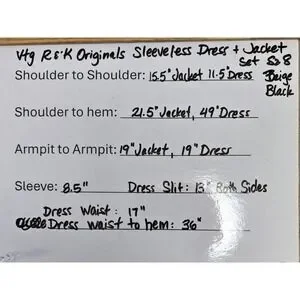 Vtg R&K Originals Sleeveless Dress + Jacket
Set Sz 8
Shoulder to Shoulder: 15.5" Jacket 11.5" Dress Beige
Black
Shoulder to hem: 21.5" Jacket, 49" Dress
Armpit to Armpit: 19" Jacket, 19" Dress
Sleeve: 8.5" Dress Slit: 13" Both Sides
Dress Waist: 17"
Dress waist to hem: 36"